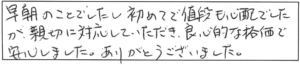 早朝のことでしたし初めてで値段も心配でした
が、親切に対応していただき、良心的な格価で
安心しました。ありがとうございました。